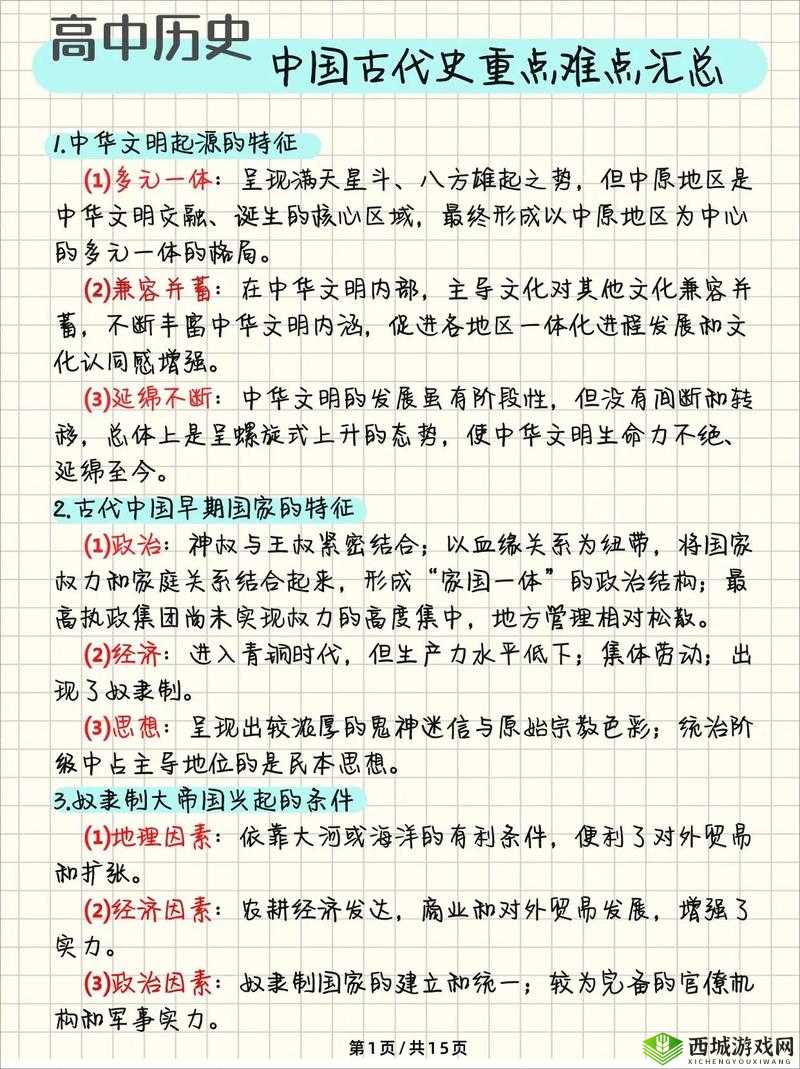 高中历史
中国古代史重点难点汇总
1.中华文明起源的特征
(1)多元一体：呈现满天星斗、八方雄起之势，但中原地区是
中华文明交融、诞生的核心区域，最终形成以中原地区为中心
的多元一体的格局。
(2)兼容并蓄：在中华文明内部，主导文化对其他文化兼容并
蓄，不断丰富中华文明内涵，促进各地区一体化进程发展和文
化认同感增强。
(3)延绵不断：中华文明的发展虽有阶段性，但没有间断和转
移，总体上是呈螺旋式上升的态势，使中华文明生命力不绝、
延绵至今。
2.古代中国早期国家的特征
(1)政治：神权与王权紧密结合；以血缘关系为纽带，将国家
权力和家庭关系结合起来，形成“家国一体”的政治结构；最
高执政集团尚未实现权力的高度集中，地方管理相对松散。
(2)经济：进入青铜时代，但生产力水平低下；集体劳动；出
现了奴隶制。
(3)思想：呈现出较浓厚的鬼神迷信与原始宗教色彩；统治阶
级中占主导地位的是民本思想。
3.奴隶制大帝国兴起的条件
(1)地理因素：依靠大河或海洋的有利条件，便利了对外贸易
和扩张。
(2)经济因素：农耕经济发达，商业和对外贸易发展，增强了
实力。
(3)政治因素：奴隶制国家的建立和统一；较为完备的官僚机
构和军事实力。
第1页/共15页
西城游戏网
XICHENGYOUXIWANG